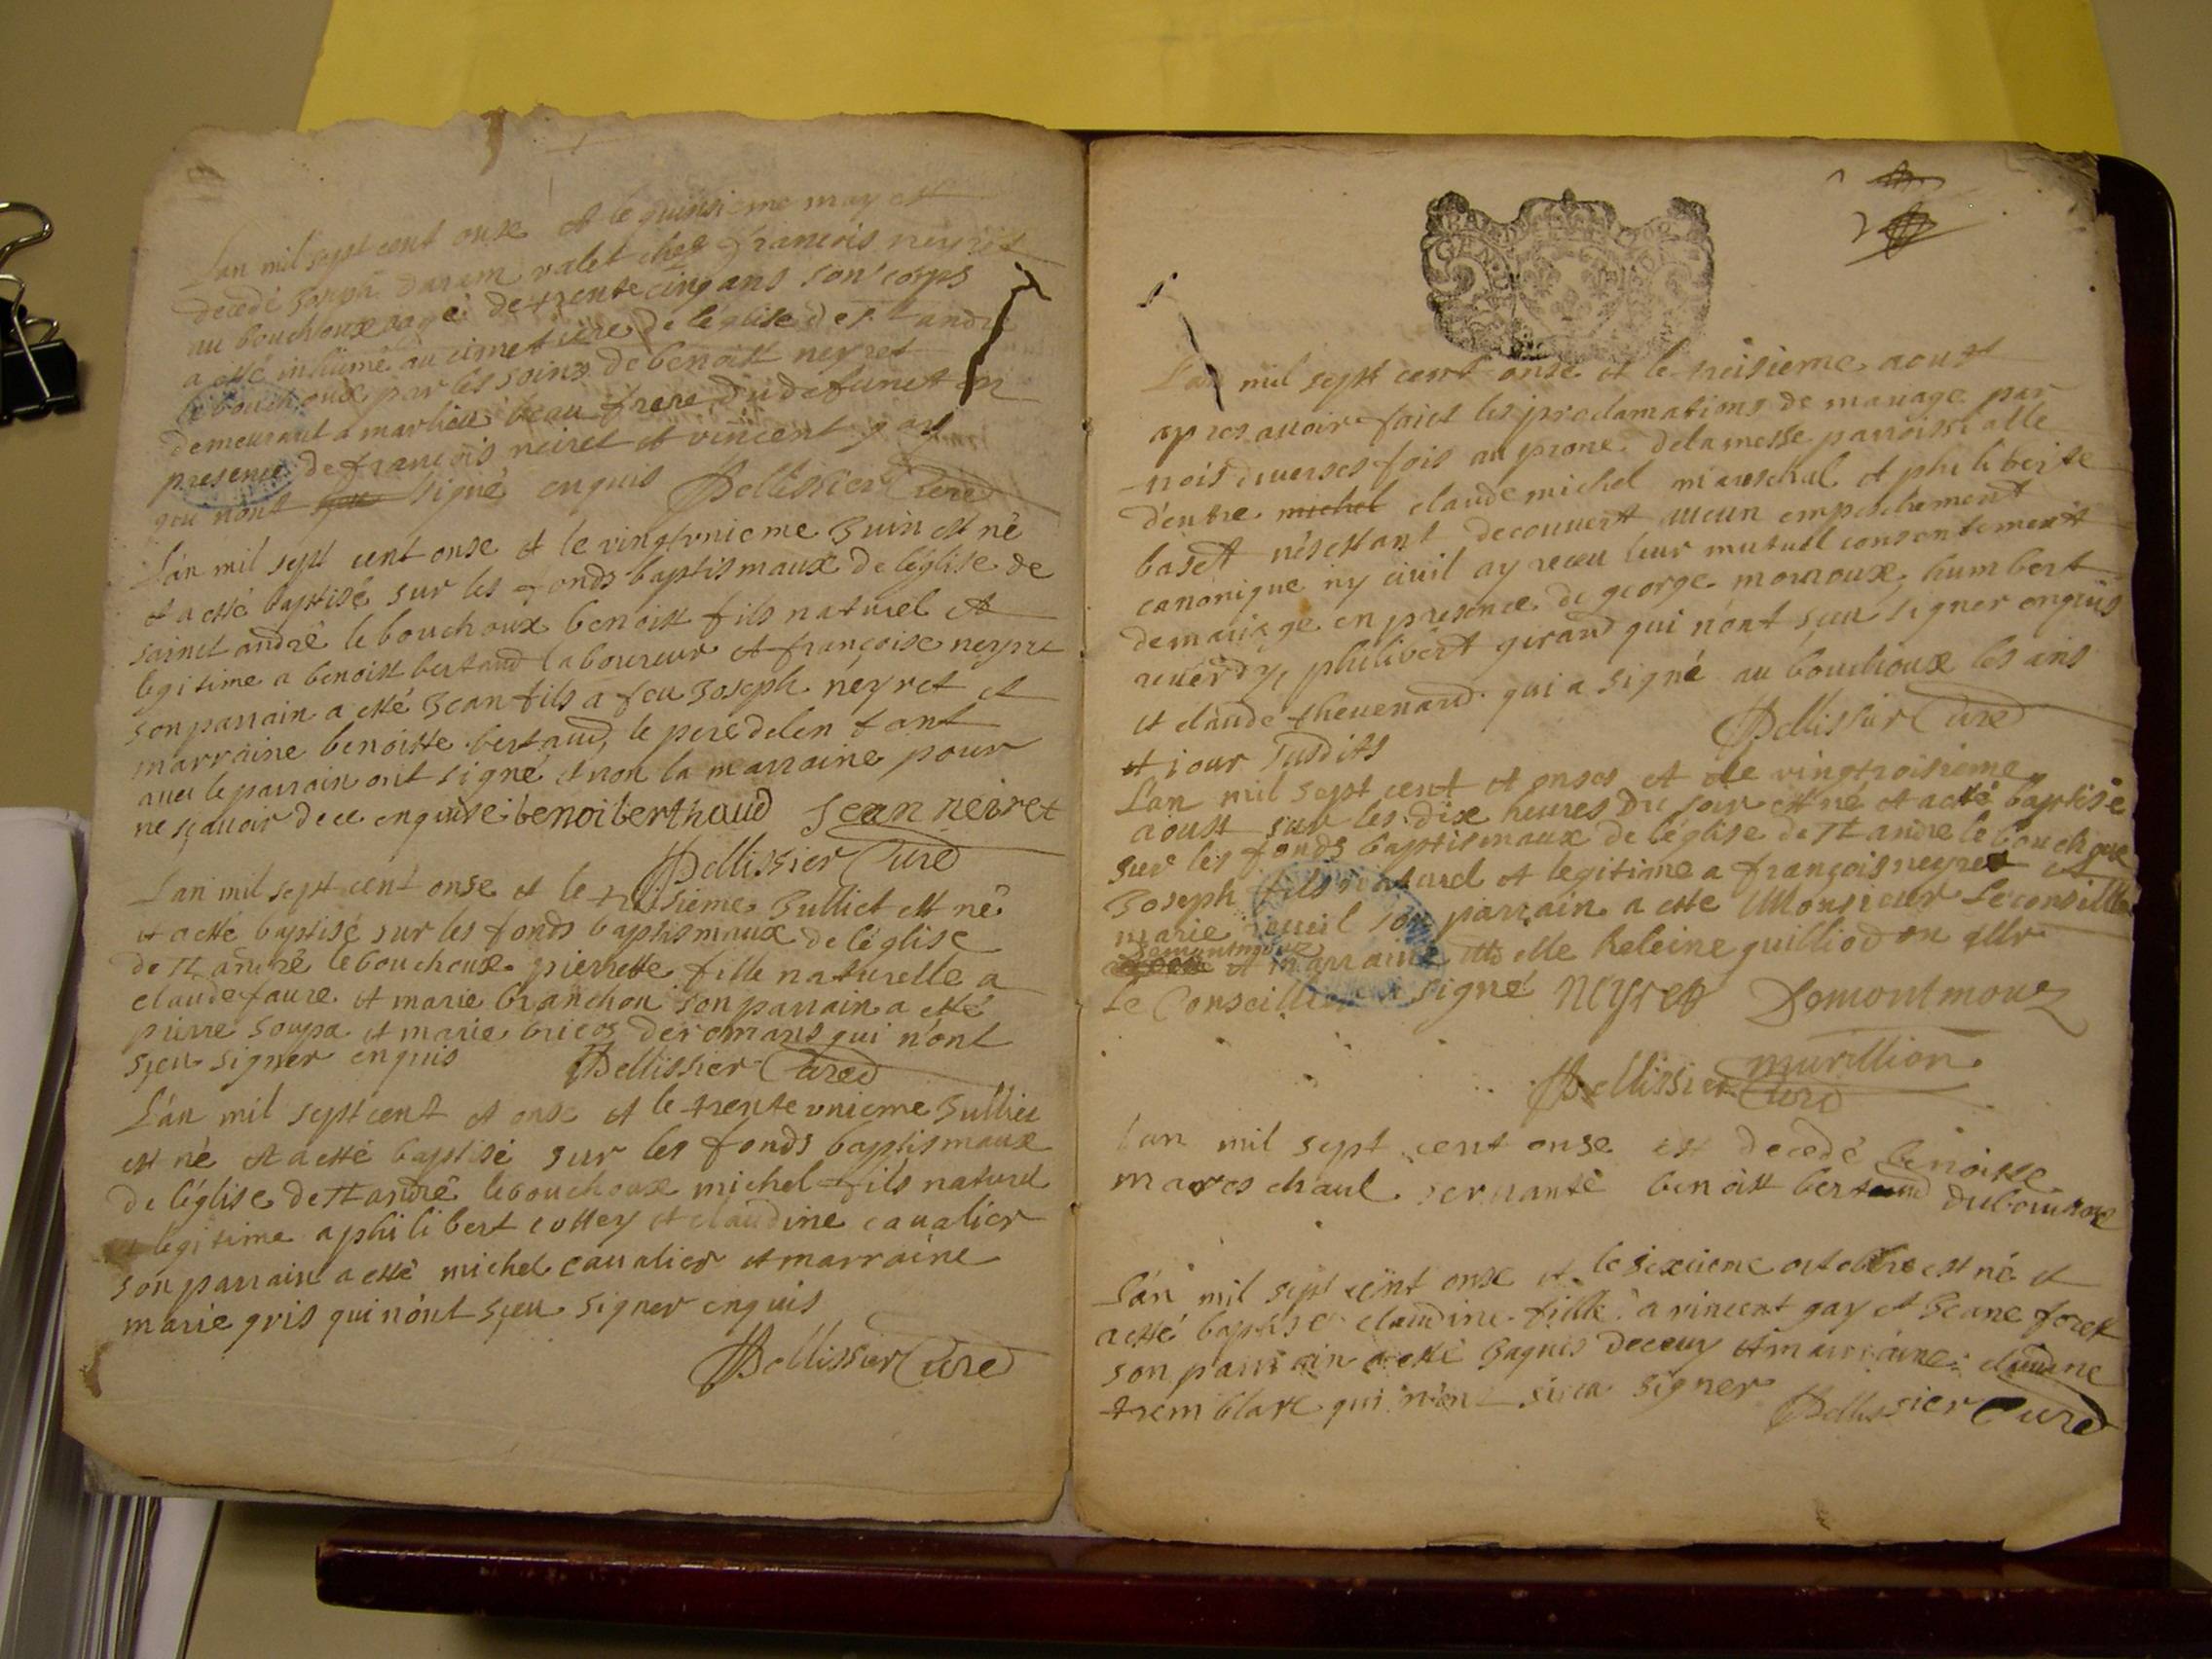 L'an mil sept cent onse et le quinsieme may est
decedé Joseph darem valet chez francois neyret
au bouchoux agé de trente cinq ans son corps
a esté inhumé au cimetiere de l'église de st andré
le bouchoux par les soins de benoist neyret
demeurant a marlieu beau frere du defunct en
presence de francois neiret et vincent gay
qui n'ont signé enquis Pellissier Curé
L'an mil sept cent onse et le vingtunieme Juin est né
et a esté baptisé sur les fonds baptismaux de l'église de
sainct andré le bouchoux benoist fils naturel et
legitime a benoist bertaud laboureur et françoise neyret
son parrain a esté Jean fils a feu Joseph néyret et
marraine benoiste bertaud, le pere de lenfant
avec le parrain ont signé et non la marraine pour
ne sçavoir de ce enquise benoiberthaud Jean neiret
Pellissier Curé
L'an mil sept cent onse et le troisieme Julliet est né
et a esté baptisé sur les fonds baptismaux de l'église
de st andré le bouchoux pierrette fille naturelle a
claude faure et marie branchon son parrain a esté
pierre soupa et marie bricos de romans qui n'ont
sçeu signer enquis Pellissier Curé
L'án mil sept cent et onse et le trente unieme Julliet
est né et a esté baptisé sur les fonds baptismaux
de l'église de st andré le bouchoux michel fils naturel
et legitime a philibert cottey et claudine cavalier
son parrain a esté michel cavalier et marraine
marie gris qui n'ont sçeu signer enquis
Pellissier Curé
L'an mil sept cent onse et le treisieme aoust
apres avoir faict les proclamations de mariage par
trois diverses fois au prone de la messe parroissialle
d'entre michel claude michel mareschal et philiberte
baset n'esttant decouvert aucun empeschement
canonique ny civil ay receu leur mutuel consentement
de mariage en presence de george morroux, humbert
reverdy, philibert girard qui n'ont sçeu signer enquis
et claude thevenard qui a signé au bouchoux les ans
et jour susdits Pellissier Curé
L'an mil sept cent et onses et le vingtroisieme
aoust sur les dix heures du soir est né et a esté baptisé
sur les fonds baptismaux de l'église de st andre le bouchoux
Joseph fils naturel et legitime a françois neyret et
marie son parrain a esté Monsieur Le conseiller
Demontmouz et marraine melle heleine guilliod en
Le Conseiller a signé Neyret Demontmouz
murillion
Pellissier Curé
L'an mil sept cent onse est decedé benoiste
mareschaul servante benoist bertaud du bouchoux
L'án mil sept cent onse et le sixieme octobre est né et
a esté baptisé claudine fille a vincent gay et Jeane foret
son parrain a esté Jaques deceuy et marraine claudine
tremblare qui n'ont sceu signer Pellissier Curé